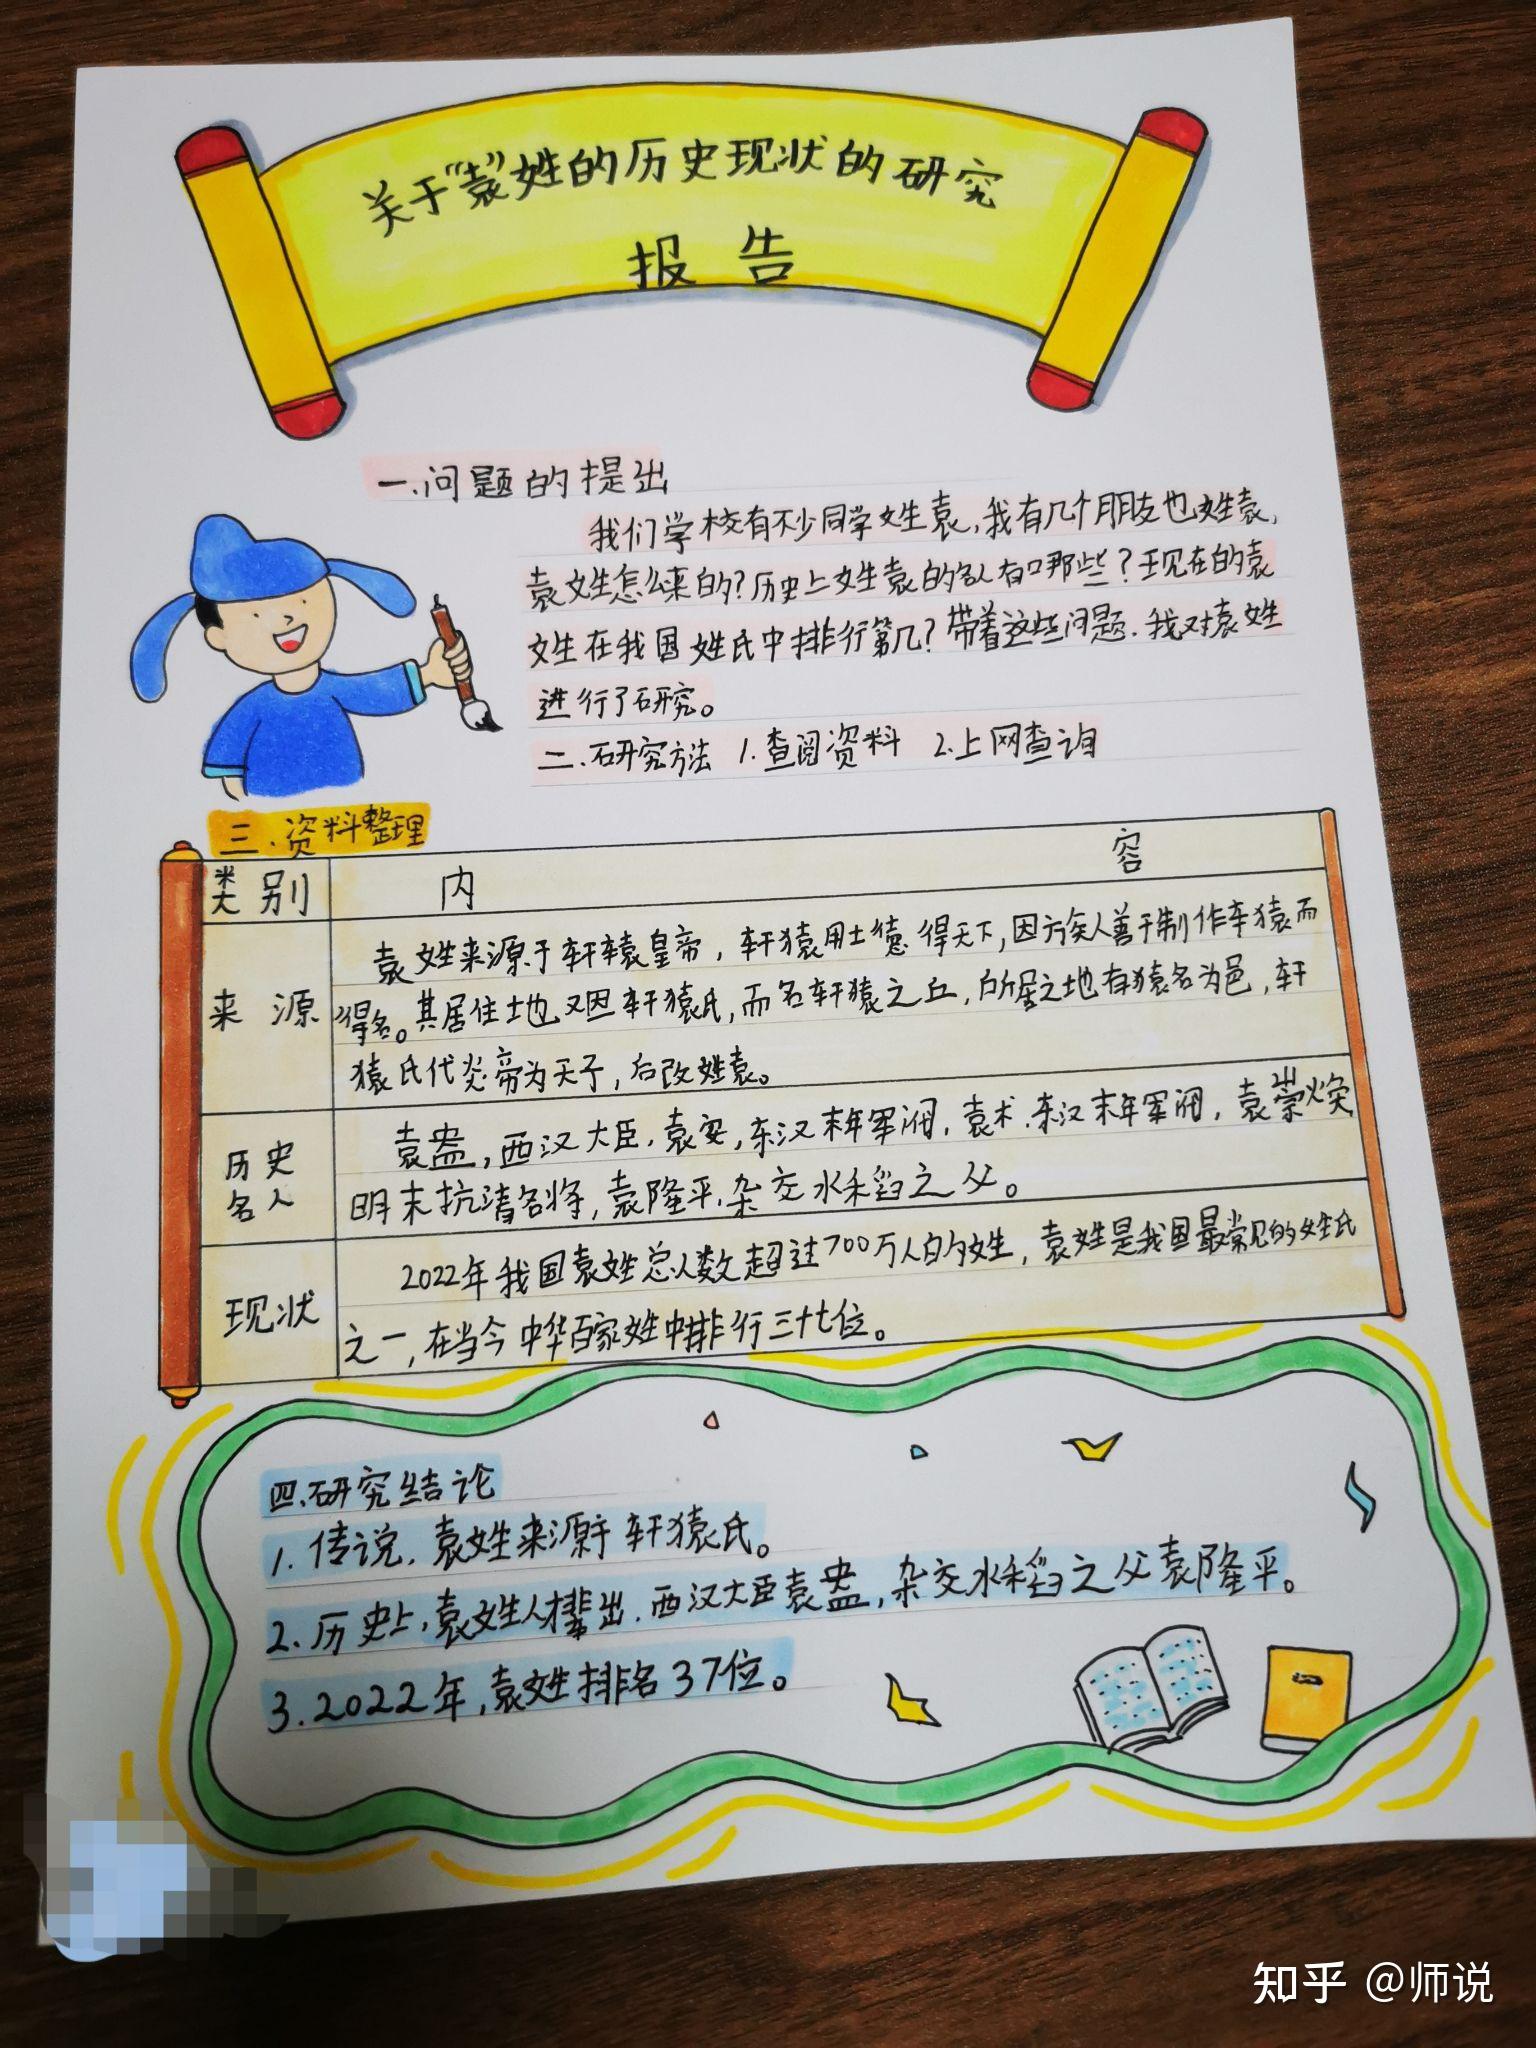 关于“袁”姓的历史现状的研究
报告
一.问题的提出
我们学校有不少同学姓袁,我有几个朋友也姓袁,
袁姓怎么来的?历史上姓袁的名人有哪些?现在的袁
姓在我国姓氏中排行第几?带着这些问题.我对袁姓
进行了研究。
二.研究方法 1.查阅资料 2.上网查询
三.资料整理
类别 内 容
来源
袁姓来源于轩辕皇帝,轩猿用土德得天下,因方族人善于制作车猿而
得名。其居住土地又因轩猿氏,而名轩猿之丘,所居之地有猿名为邑,轩
猿氏代炎帝为天子,后改姓袁。
历史
名人
袁盎,西汉大臣.袁安,东汉末年军阀,袁术.东汉末年军阀,袁崇焕
明末抗清名将,袁隆平.杂交水稻之父。
现状
2022年我国袁姓总人数超过700万人的姓,袁姓是我国最常见的姓氏
之一,在当今中华百家姓中排行三十七位。
四.研究结论
1.传说,袁姓来源于轩猿氏。
2.历史上,袁姓人才辈出.西汉大臣袁盎,杂交水稻之父袁隆平。
3.2022年,袁姓排名37位。
知乎 @师说